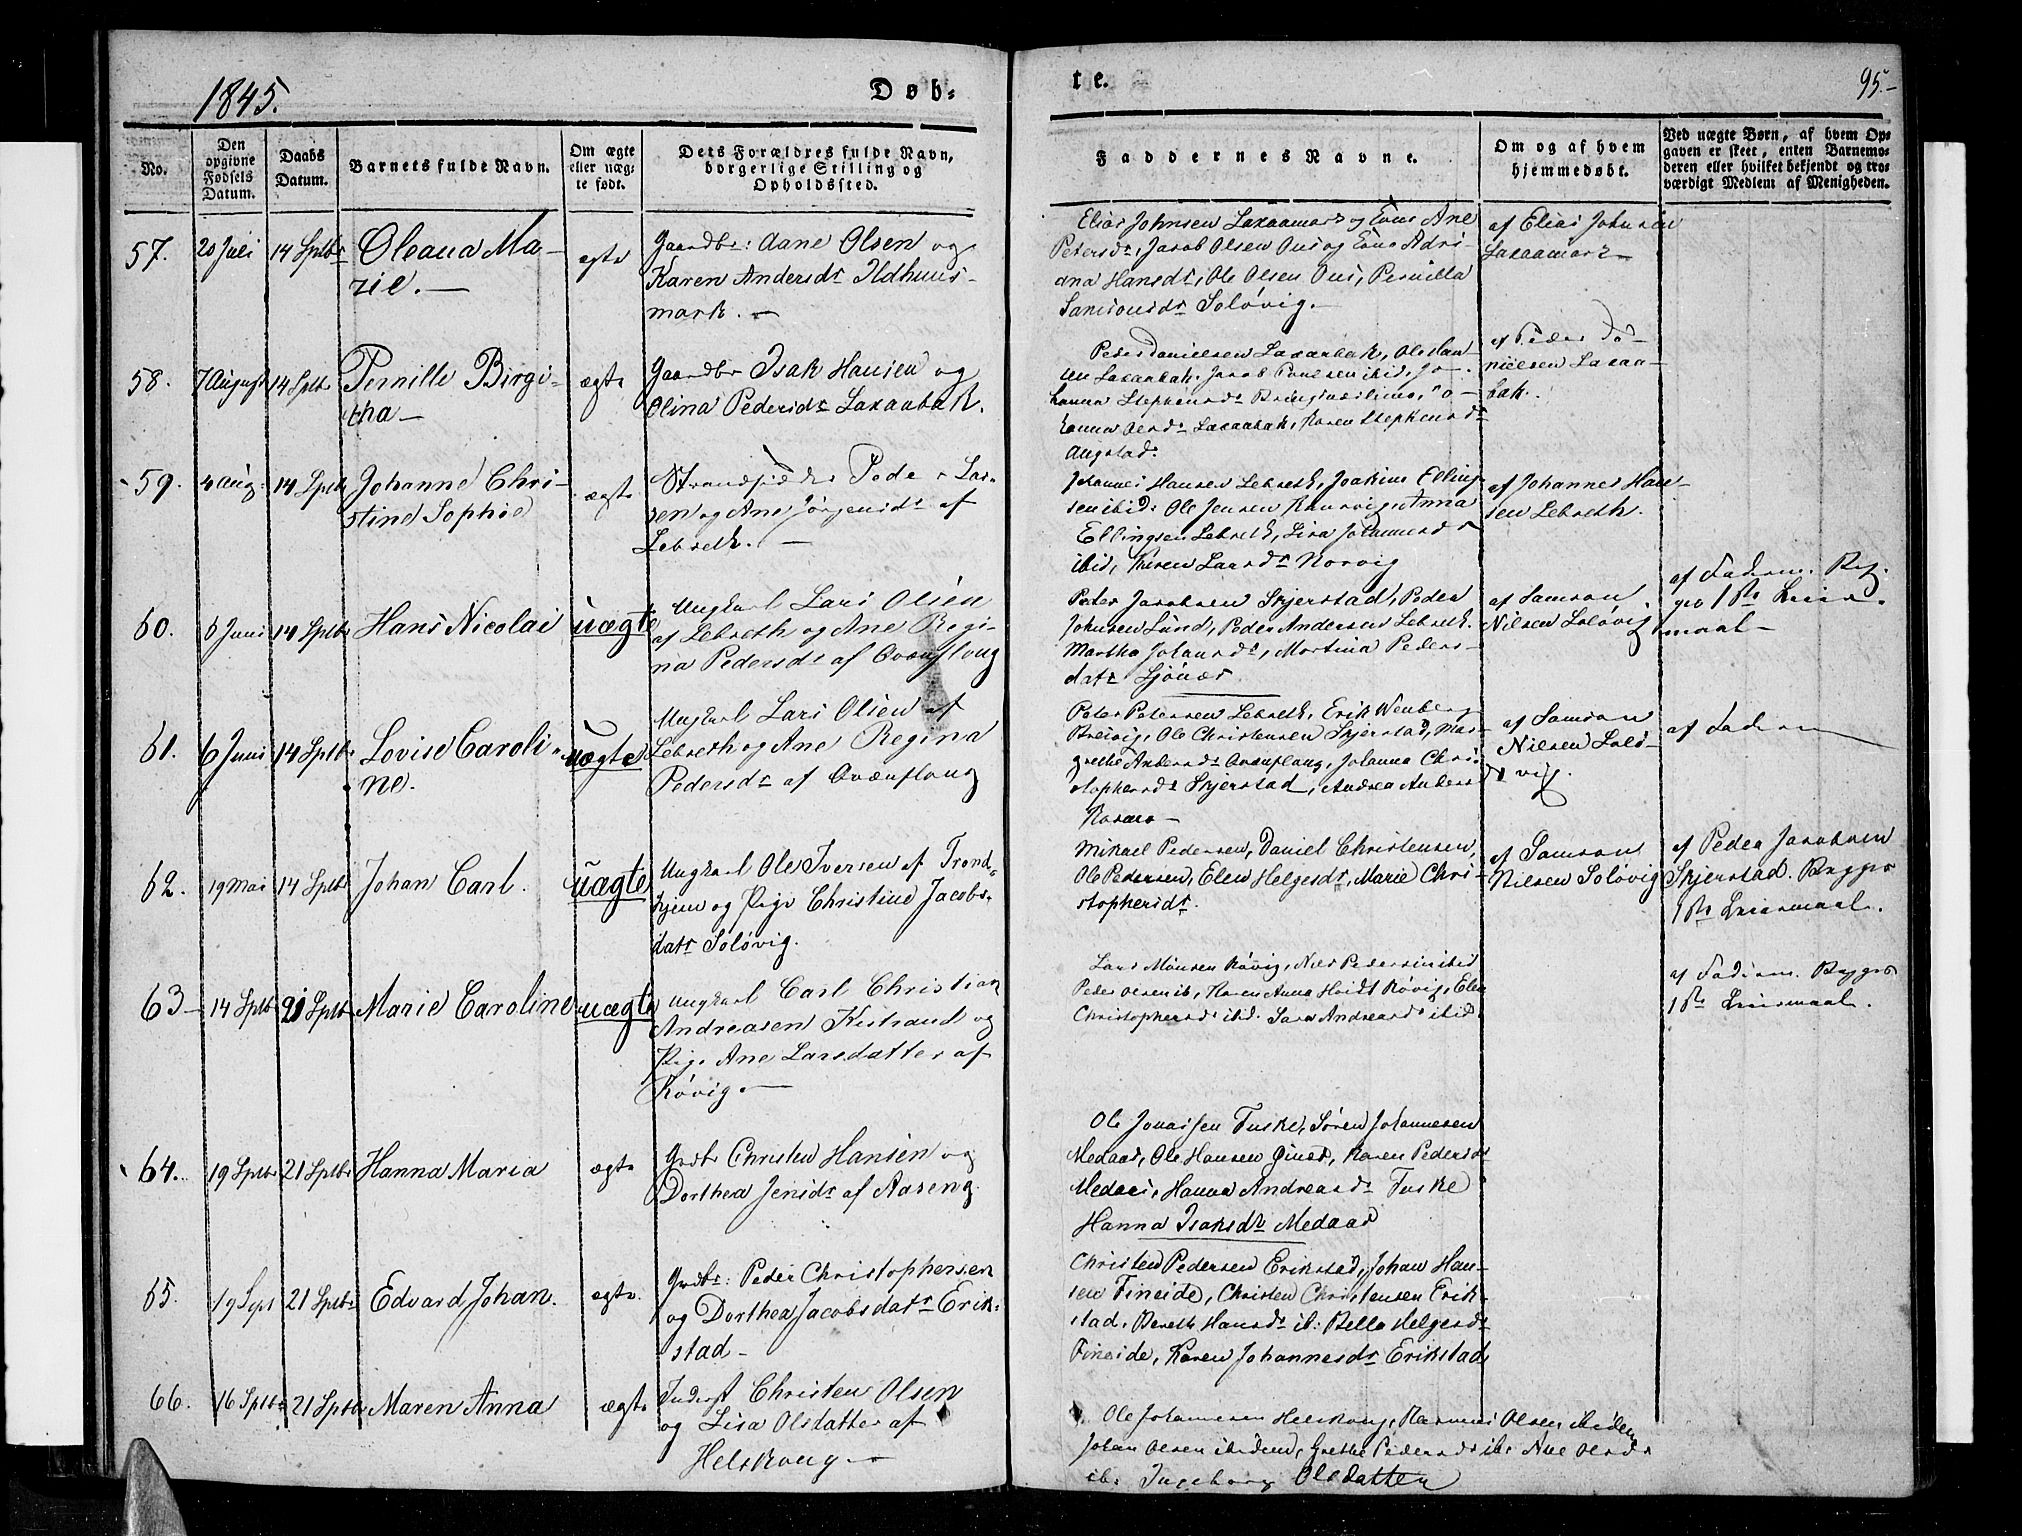 1845.
Døb-
te.
95.-
No.
Den opgivne Fødsels Datum.
Daabs Datum.
Barnets fulde Navn.
Om ægte eller uægte født.
Dets Forældres fulde Navn, borgerlige Stilling og Opholdssted.
Faddernes Navne.
Om og af hvem hjemmedøbt.
Ved uægte Børn, af hvem Opgaven er skeet, enten Barnemoderen eller hvilket bekjendt og troværdigt Medlem af Menigheden.
57. 20 Juli 14 Sptbr Oleana Ma-
rie.-
ægte
Gaardbr: Aane Olsen og
Karen Andersdr Ildhuus-
mark.-
Elias Johnsen Laxaamark og Kone Ane
Petersdr, Jacob Olsen Ous og Kone Adri-
ana Hansdr, Ole Olsen Ous, Pernilla
Samsonsdr Soløvig.-
af Elias Johnsen
Laxaamark
58. 7 August 14 Sptbr Pernille Birgi-
tha-
ægte
Gaardbr Isak Hansen og
Olina Pedersdr Laxaabak.
Peder Danielsen Laxaabak, Ole Han-
sen Laxaabak, Jacob Poulsen ibid, Jo-
hanna Stephensdr
Olesdr Laxaabak, Karen Stephensdr
Augstad.
af Peder Da-
nielsen Laxaa-
bak.
59. 4 Aug: 14 Sptbr Johanne Chri-
stine Sophie
ægte
Strandsidder Peder Lar-
sen og Ane Jørgensdr af
Lebseth.-
Johannes Hansen Lebseth, Joakim Elling-
sen ibid: Ole Jensen Anna
Ellingsen Lebseth, Lisa Johannesdr
ibid, Karen Larsdr Norvig
af Johannes Han-
sen Lebseth.
60. 6 Juni 14 Sptbr Hans Nicolai
uægte
Ungkarl Lars Olsen
af Lebseth og Ane Regi-
na Pedersdr af Ovænflong
Peder Jacobsen Skjerstad, Peder
Johnsen Lund, Peder Andersen Lebseth.
Martha Johansdr, Martina Peders-
datr
af Samson
Nilsen Soløvig
af Faderen. Beg-
ges 1ste Leier-
maal-
61. 6 Juni 14 Sptbr Lovise Caroli-
ne.
uægte
Ungkarl Lars Olsen af
Lebseth og Ane Regina
Pedersdr af Ovænflong
Peter Petersen Lebseth, Erik Wenberg
Breivig, Ole Christensen Skjerstad, Mar-
grethe Andersdr Ovænflong, Johanna Chri-
stophersdr Skjerstad, Andrea Anders
af Samson
Nilsen Solø-
vig.
af Faderen
62. 19 Mai 14 Sptbr Johan Carl.
uægte
Ungkarl Ole Iversen af Trond-
hjem og Pige Christine Jacobs-
datr Soløvig.
Mikael Pedersen, Daniel Christensen,
Ole Pedersen, Elen Helgesdr, Marie Chri-
stophersdr.
af Samson
Nilsen Soløvig
af Peder Jacobsen
Skjerstad. Begges
1ste Leiermaal.
63- 14 Sptbr 21 Sptbr Marie Caroline
uægte
Ungkarl Carl Christian
Andreasen Kistrand og
Pige Ane Larsdatter af
Røvig.-
Lars Monsen Røvig, Niels Pedersen ibid
Peder Olsen ib, Karen Anna Hvidt Røvig, Elen
Christophersdr ibid. Sara Andreasdr ibid.
af Faderen. Begges
1ste Leiermaal.
64. 19 Sptbr 21 Sptbr Hanna Maria
ægte
Grdbr Christen Hansen og
Dorthea Jensdr af Aaseng.
Ole Jonassen Fuske, Søren Johannesen
Medaas, Ole Hansen, Karen Pedersdr
Medaas, Hanna Andreasdr Fuske
Hanna Isaksdr Medaas
65. 19 Sept 21 Sptbr Edvard Johan.
ægte.
Grdbr: Peder Christophersen
og Dorthea Jacobsdatr Erik-
stad-
Christen Pedersen Erikstad, Johan Han-
sen Fineide, Christen Christensen Erik-
stad, Bereth Hansdr ib: Bella Helgesdr
Fineide, Karen Johannesdr Erikstad
66. 16 Sptbr 21 Sptbr Maren Anna
ægte
Inderst Christen Olsen
og Lisa Olsdatter af
Helskong.-
Ole Johannesen Helskong, Rasmus Olsen ibidem
Johan Olsen ibidem, Grethe Pedersdr ib. Ane Olsdr
ib. Ingeborg Olsdatter